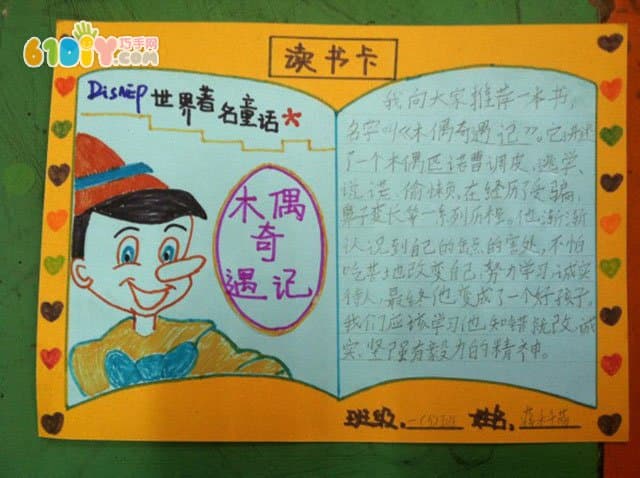 61DIY巧手网
.com
读书卡
DisNEP 世界著名童话
木偶
奇
遇记
我向大家推荐一本书,
名字叫《木偶奇遇记》。它讲述
了一个木偶匹诺曹调皮、逃学、
说谎、偷懒,在经历受骗,
鼻子变长等一系列历程。他渐渐
认识到自己的缺点的害处,不怕
吃苦地改变自己,努力学习,诚实
待人,最终他变成了一个好孩子。
我们应该学习他知错就改、诚
实、坚强有毅力的精神。
班级: 姓名: